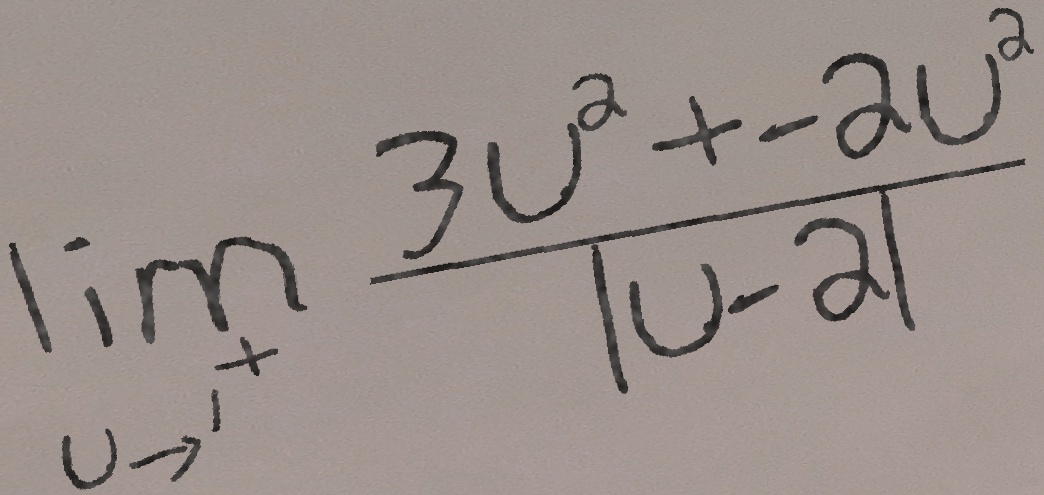 \lim_{u \to 1^+} \frac{3u^2 + -2u^2}{|u - 2|}